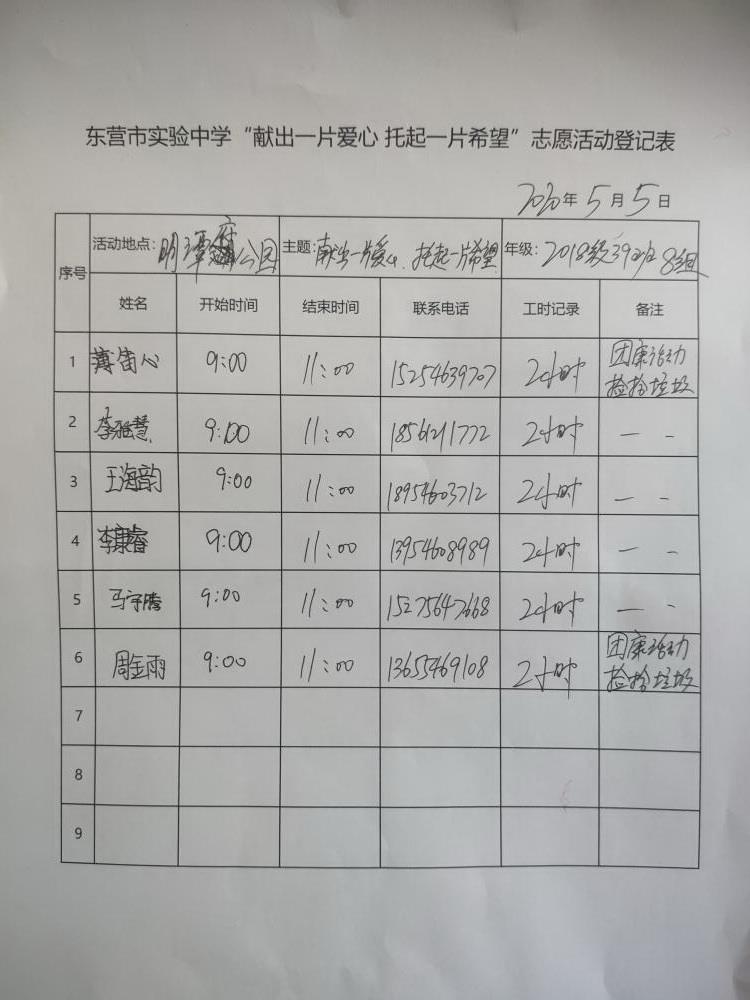 东营市实验中学“献出一片爱心 托起一片希望”志愿活动登记表
2020年5月5日
序号 活动地点:明潭府公园 主题:献出一片爱心、托起一片希望 年级:2018级39班8组
姓名 开始时间 结束时间 联系电话 工时记录 备注
1 薄笛心 9:00 11:00 15254639707 2小时 团康活动 捡拾垃圾
2 李雅慧 9:00 11:00 18561211772 2小时 — -
3 王海韵 9:00 11:00 18954603712 2小时 — -
4 李康睿 9:00 11:00 13954608989 2小时 — -
5 马宇腾 9:00 11:00 15275647668 2小时 — -
6 周金雨 9:00 11:00 13655469108 2小时 团康活动 捡拾垃圾
7
8
9